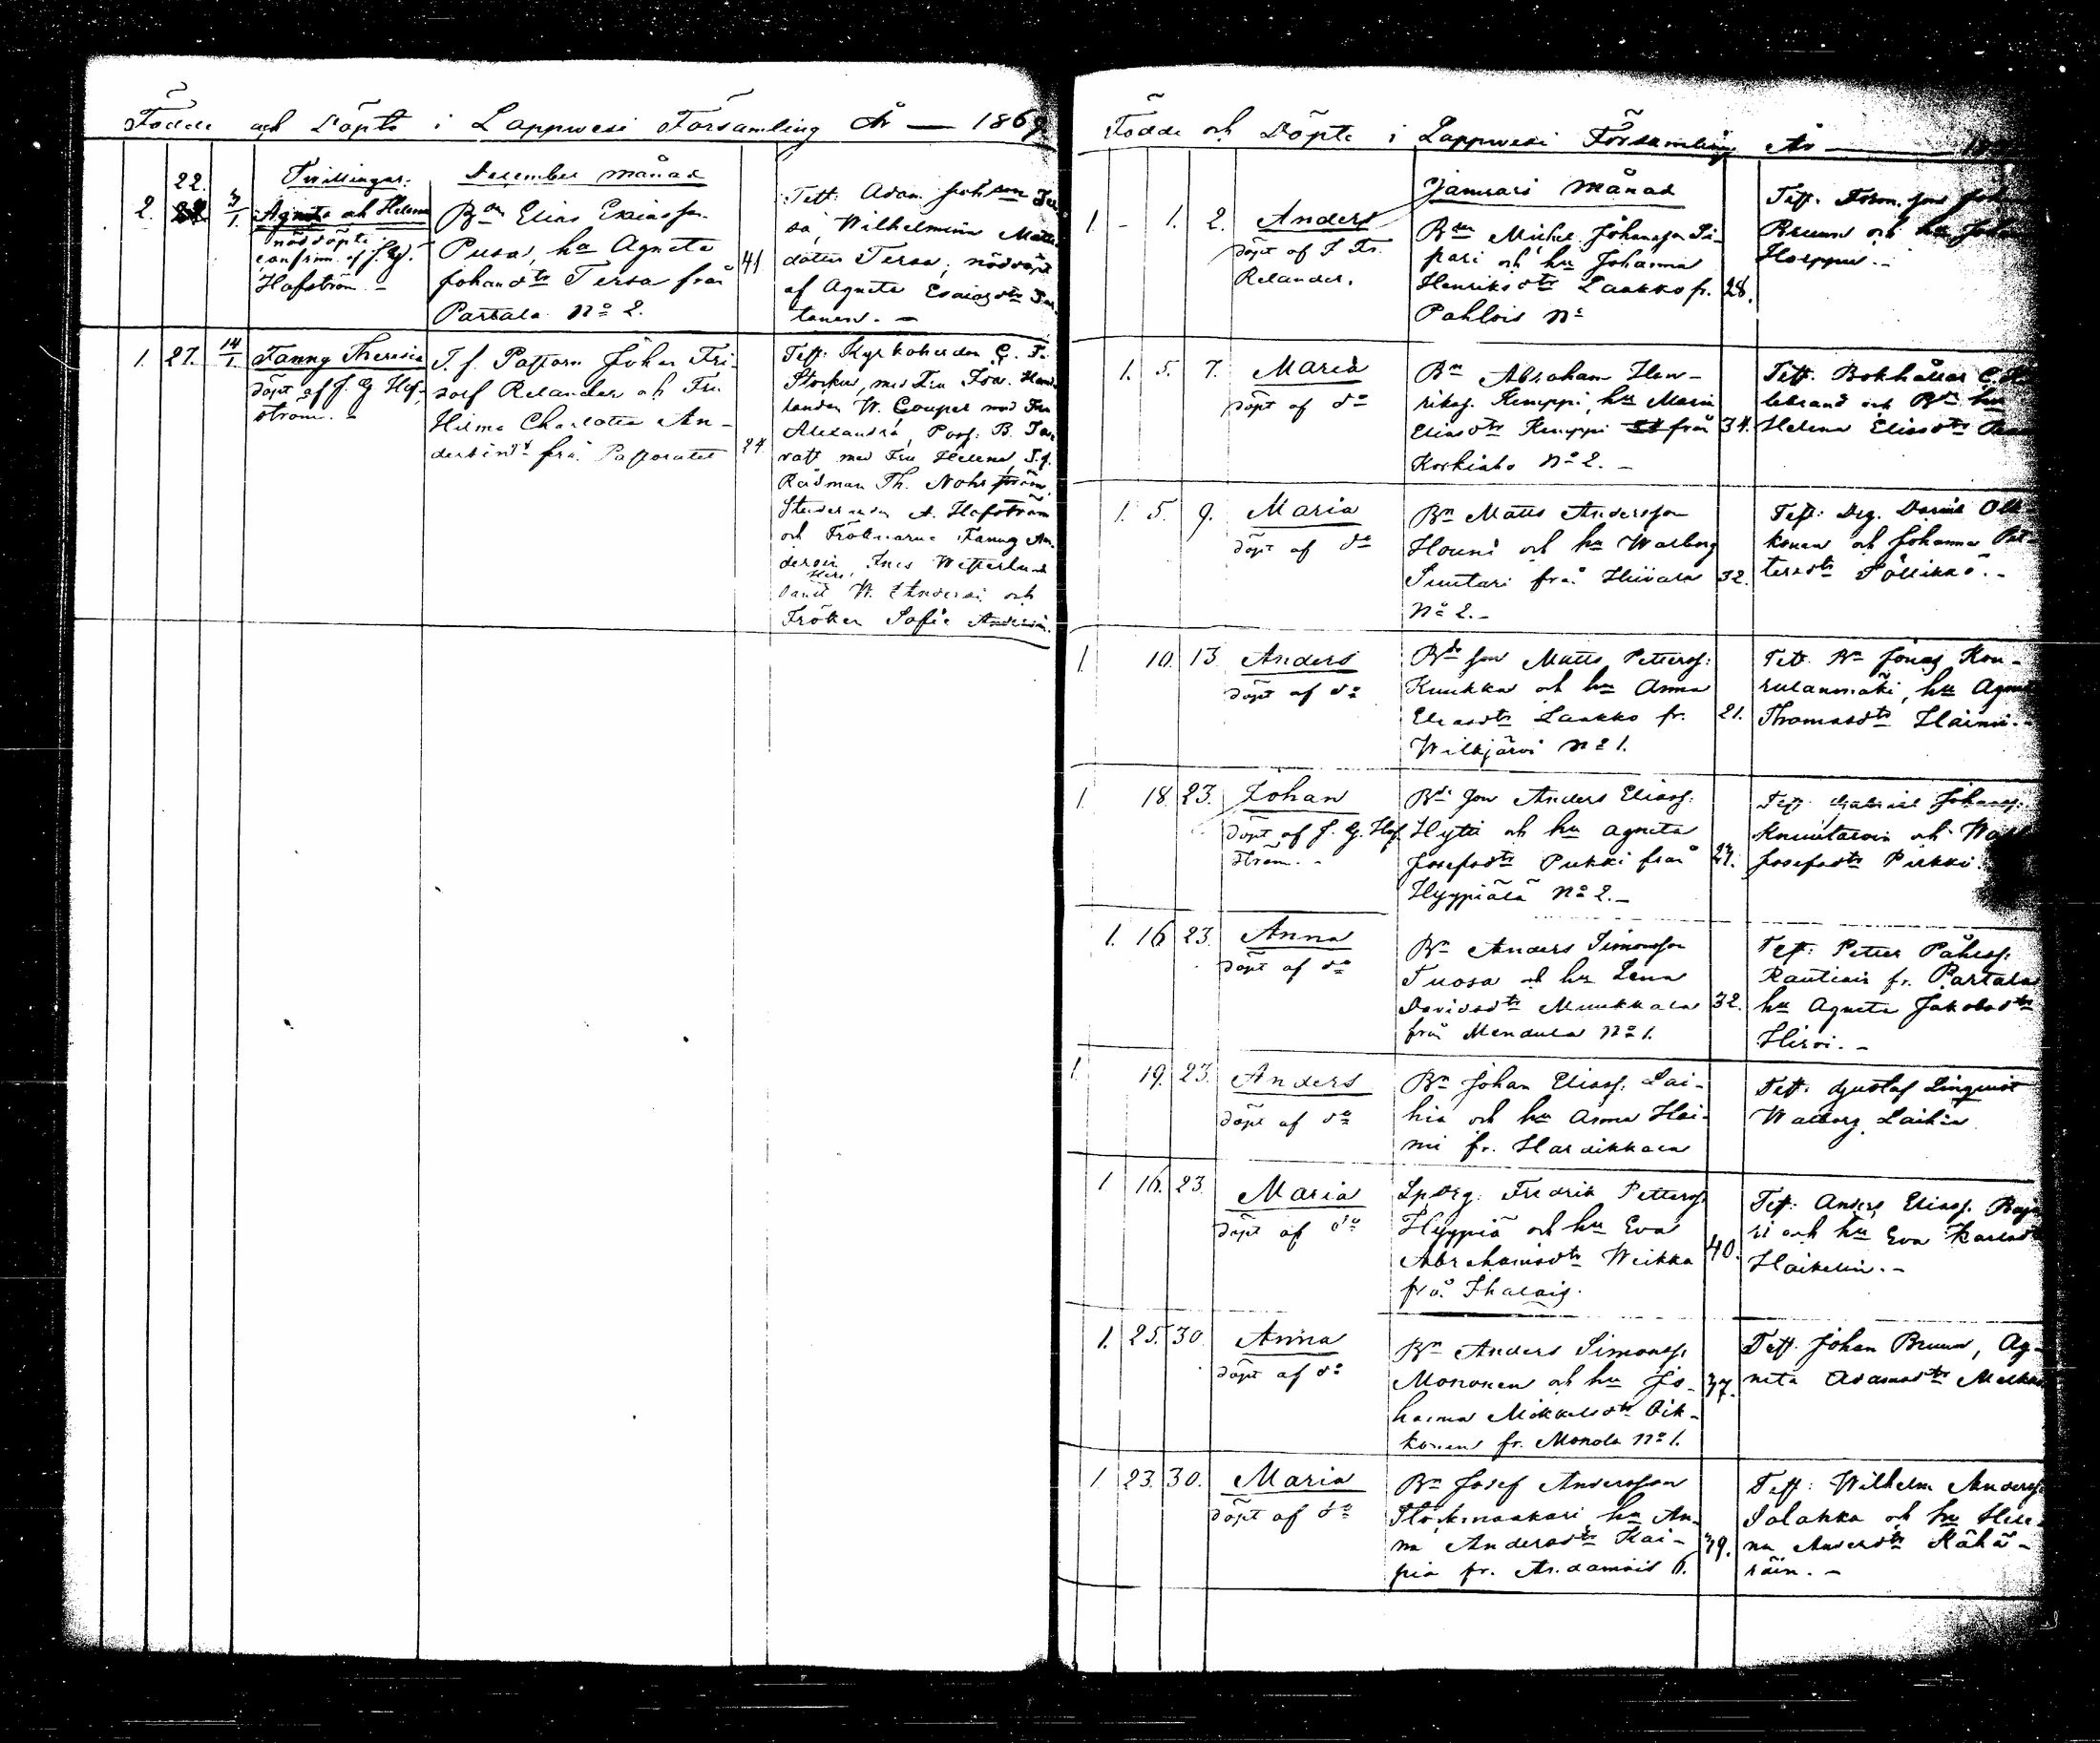 Födde och Döpte i Lappwesi Församling År — 1869
Tvillingar.
December månad
2. 22. 3/1.
Agneta och Helena
nöddöpte
confirm. af J. G.
Hofström. –
Bon Elias Esaiasson
Pusa, hu Agneta
Johansdtr Tersa från
Partala No 2.
41
Test. Adam Johsson
sa, Wilhelmina Matts
dotter Tersa; nöddöpt
af Agneta Esaiasdtr
tanen. –
1. 27. 14/1.
Fanny Theresia
döpt af J. G. Hof-
ström. –
T. f. Pastorn Johan Fri-
dolf Relander och Fru
Hilma Charlotta An-
dersin från Pastoratet
Test. Kyrkoherden
med Fru
W. Couper med Fru
Alexandra, Past. B.
med Fru Helena, T. f.
Rådman Th. Nohrström,
Studeranden A. Hofström
och Fröknarna Fanny An-
dersin, Ines Wetterlund
samt Herr W. Andersin och
Fröken Sofie Andersin.
Födde och Döpte i Lappwesi Församling År — 18
Januari Månad
1. 1. 2. Anders
döpt af J. Fr.
Relander.
Bon Michel Johansson
pari och hu Johanna
Henriksdtr Laakko fr.
Pahlois No
28.
Test.
Bruun och hu Johan
Horppu. –
1. 5. 7. Maria
döpt af do
Bn Abraham Hen-
rikss. Kemppi, hu Maria
Eliasdtr Kemppi från
Koskiaho No 2. –
34.
Test. Bokhållar C.
lebrand och
Helena Eliasdtr
1. 5. 9. Maria
döpt af do
Bn Matts Andersson
Houni och hu Walborg
Suutari från Hiivala
No 2. –
32.
Test: Drg. David Ol-
konen och Johanna Pet-
tersdtr Pöllikkö. –
1. 10. 13. Anders
döpt af do
Bde son Matts Petterss:
Kuukka och hu Anna
Eliasdtr Laakko fr.
Wilkjärvi No 1.
21.
Test. Bn Jonas Kon-
rulanmäki, hu Agneta
Thomasdtr Haimi. –
1. 18. 23. Johan
döpt af J. G. Hof-
ström. –
Bde son Anders Eliass:
Hytti och hu Agneta
Josefsdtr Pukki från
Hyypiälä No 2. –
Test. Gabriel Johanss:
och
Josefsdtr Pukki.
1. 16 23. Anna
döpt af do
Bn Anders Simonsson
Tuosa och hu Lena
Davidsdtr Muukkala
från Mendula No 1.
32.
Test: Petter Påhlss.
Rautiain fr. Partala
hu Agneta Jakobsdtr
Hirvi. –
1. 19. 23. Anders
döpt af do
Bn Johan Eliass. Lai-
hia och hu Anna Hai-
mi fr. Hardikkala
Test. Gustaf Linqvist
Walborg Laihia
1 16. 23 Maria
döpt af do
Lpdrg: Fredrik Petterss.
Hyypiä och hu Eva
Abrahamsdtr Weikka
från Ihalais.
40.
Test: Anders Eliass.
och hu Eva Karlsdtr
Haikelin. –
1. 25. 30 Anna
döpt af do
Bn Anders Simonss.
Mononen och hu Jo-
hanna Mikkelsdtr Oik-
konen fr. Monola No 1.
37.
Test. Johan Bruun, Ag-
neta Adamsdtr
1. 23. 30. Maria
döpt af do
Bn Josef Andersson
Plockinaakari, hu An-
na Andersdtr Kai-
pia fr. 6.
39.
Test: Wilhelm Anderss.
Salakka och hu Hele-
na Andersdtr Kähä-
räin. –